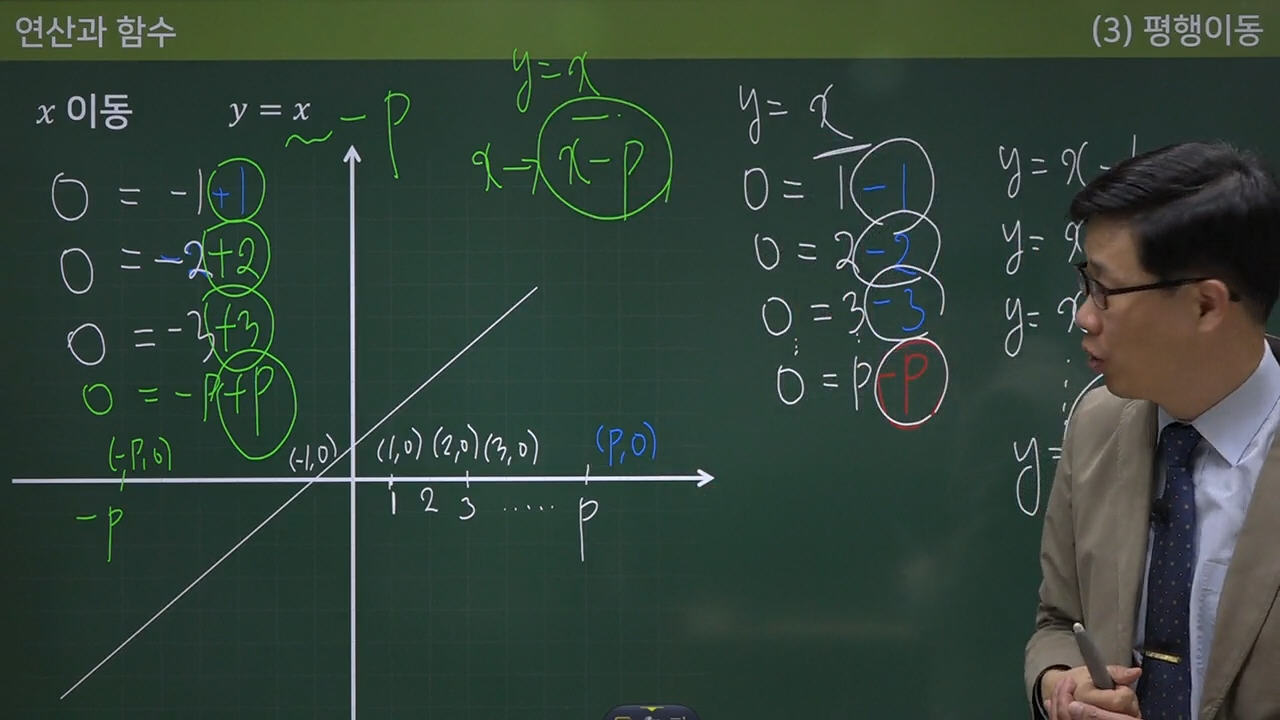 연산과 함수
(3) 평행이동
x 이동
y = x
- p
y = x
x → x - p
0 = -1 +1
0 = -2 +2
0 = -3 +3
0 = -p +p
y = x
0 = 1 -1
0 = 2 -2
0 = 3 -3
0 = p -p
y = x - 1
y = x
y = x
y =
(-p, 0) (-1, 0) (1, 0) (2, 0) (3, 0) (p, 0)
-p 1 2 3 ...... p